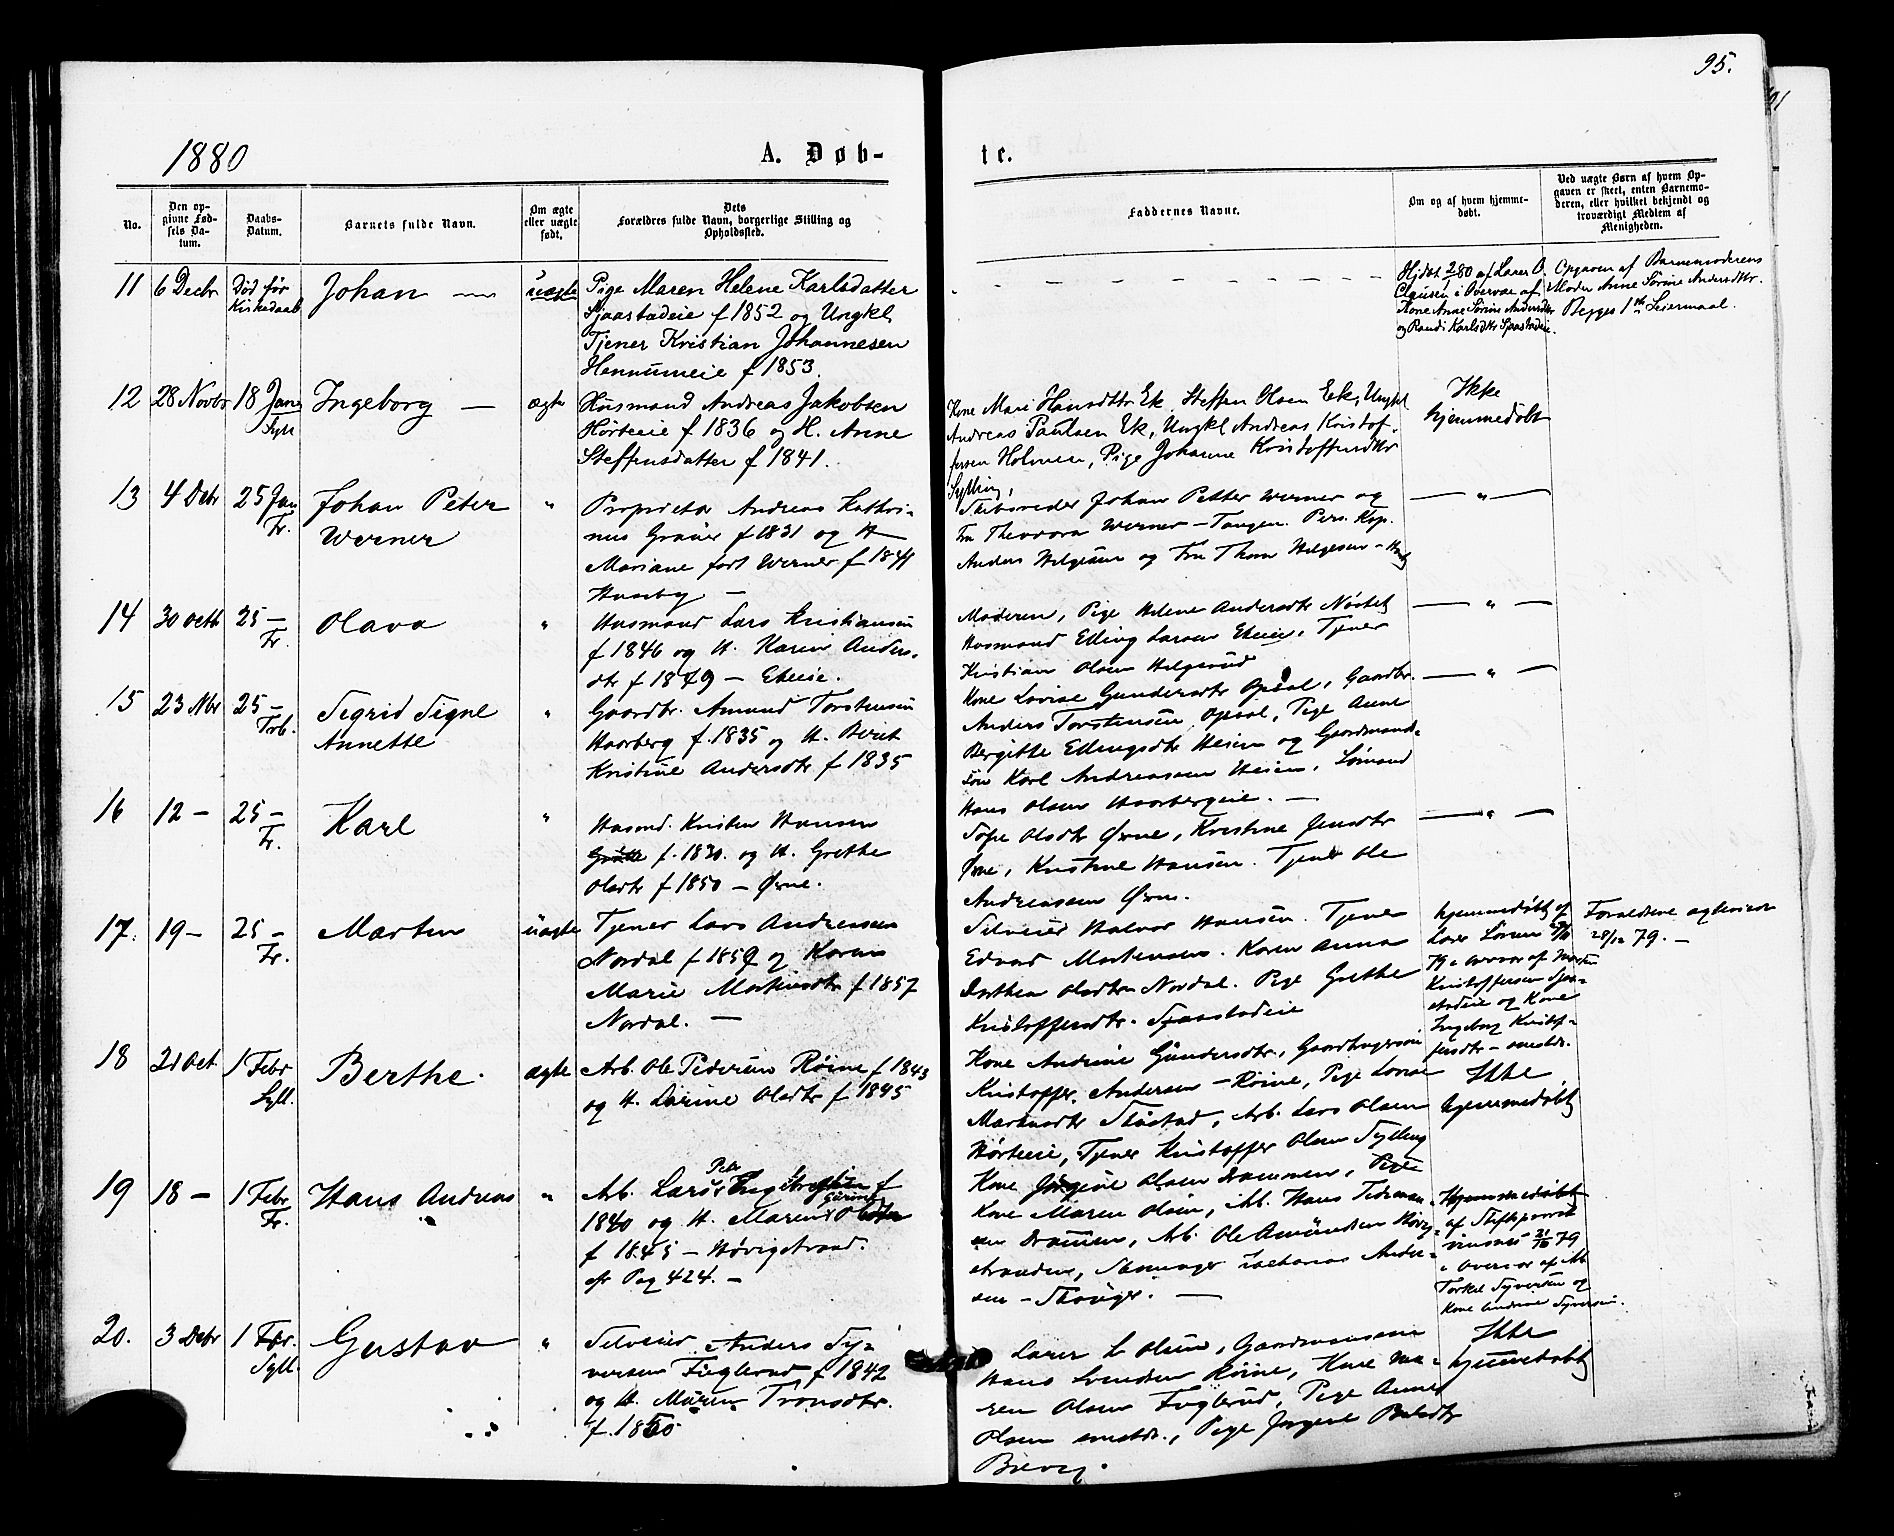 95.
1880
A. Døb-
te.
No.
Den op-
givne Fød-
sels Da-
tum.
Daabs-
Datum.
Barnets fulde Navn.
Om ægte
eller uægte
født.
Dets
Forældres fulde Navn, borgerlige Stilling og
Opholdssted.
Faddernes Navne.
Om og af hvem hjemme-
døbt.
Ved uægte Børn af hvem Op-
gaven er skeet, enten Barnemo-
deren, eller hvilket bekjendt og
troværdigt Medlem af
Menigheden.
11 6 Decbr Død før
Kirkedaab
Johan
uægte
Pige Maren Helene Karlsdatter
Sjaastadeie f 1852 og Ungkl.
Tjener Kristian Johannesen
Hennumeie f 1853.
af Lærer O.
Clausen i Overvær af
Kone Anne Sørine Andersdtr
og Randi Karlsdtr Sjaastadeie.
Opgaven af Barnemoderens
Moder Anne Sørine Andersdtr.
Begges 1ste Leiermaal.
12 28 Novbr 18 Jan
Syll
Ingeborg
ægte
Husmand Andreas Jakobsen
Hørteeie f 1836 og H. Anne
Steffensdatter f 1841.
Kone Mari Hansdtr Ek, Steffen Olsen Eek, Ungkl
Andreas Paulsen Ek, Ungkl Andreas Kristof-
fersen Holmen, Pige Johanne Kristoffersdtr
Sylling,
Ikke
hjemmedøbt
13 4 Debr 25 Jan
Fr.
Johan Peter
Werner
"
Proprietær Andreas Kathri-
nus Grøner f 1831 og H
Mariane født Werner f 1841
Huseby —
Skibsreder Johan Petter Werner og
Fru Theodora Werner - Tangen. Pers. Kap.
Anders Helgesen og Fru Thora Helgesen -
— " —
14 30 Octb 25 —
Fr.
Olava
"
Husmand Lars Kristiansen
f 1846 og H. Karen Anders-
dtr f 1849 — Ekeie.
Moderen, Pige Helene Andersdtr Nøsted
Husmand Elling Larsen Ekeie, Tjener
Kristian Olsen Helgerud
— " —
15 23 Nbr 25 —
Frb.
Sigrid Signe
Annette
"
Gaardbr. Amund Torstensen
Haarberg f. 1835 og H. Berit
Kristine Andersdtr f 1835
Kone Lovise Gundersdtr Opsal, Gaardbr.
Anders Torstensen Opsal, Pige Anne
Bergitte Ellingsdtr Heien og Gaardmands-
søn Karl Andreassen Heien, Sømand
Hans Olsen Haarbergeie. —
— " —
16 12 — 25 —
Fr.
Karl
"
Husmd. Kristen Hansen
f. 1830. og H. Grethe
Olsdtr f 1850 — Ørne.
Sofie Olsdtr Ørne, Kristine Jensdtr
Ørne, Kristine Hansen. Tjener Ole
Andreassen Ørne.
— " —
17. 19 — 25 —
Fr.
Martin
uægte
Tjener Lars Andreasen
Nordal f 1859 og Karen
Marie Martinsdtr f 1857
Nordal. —
Selveier Halvor Hansen. Tjener
Edvard Martensen. Karen Anna
Dorthea Olsdtr Nordal. Pige Grethe
Kristoffersdtr. Sjaastadeie
hjemmedøbt af
Lærer
79 i Overvær af
Kristoffersen Sjaa-
stadeie og Kone
Ingeborg Kristof-
fersdtr - smstds.
Forældrene
28/12 79. —
18 21 Oct 1 Febr
Syll.
Berthe.
ægte
Arb. Ole Pedersen Røine f 1843
og H. Larine Olsdtr f 1845
Kone Andrine Gundersdtr, Gaardbruger
Kristoffer Andersen — Røine, Pige
Stustad, Arb. Lars Olsen
Hørteeie, Tjener Kristoffer Olsen Sylling
Ikke
hjemmedøbt
19 18 — 1 Febr
Fr.
Hans Andreas
"
Arb. Lars f
1840 og H. Maren
f 1845 — Høvigstrand.
cfr Pag 424. —
Kone Jørgine Olsen Drammen, Pige
Kone Maren Olsen, Arb. Hans
Drammen, Arb. Ole Amundsen Høvig-
stranden, Zakarias Ander-
sen —
Hjemmedøbt
af
79
i Overvær af Arb
Torkel Syversen og
Kone Andrine Syversen.
20. 3 Debr 1 Febr.
Syll.
Gustav
"
Selveier Anders Sy-
versen Fuglerud f 1842
og H. Maren Tronsdtr.
f. 1850
Lærer L Olsen, Gaardmandssøn
Hans Svendsen Røine, Kone Ma-
ren Olsen Fuglerud, Pige Anne
Olsen smstds., Pige Jørgine
Ikke
hjemmedøbt